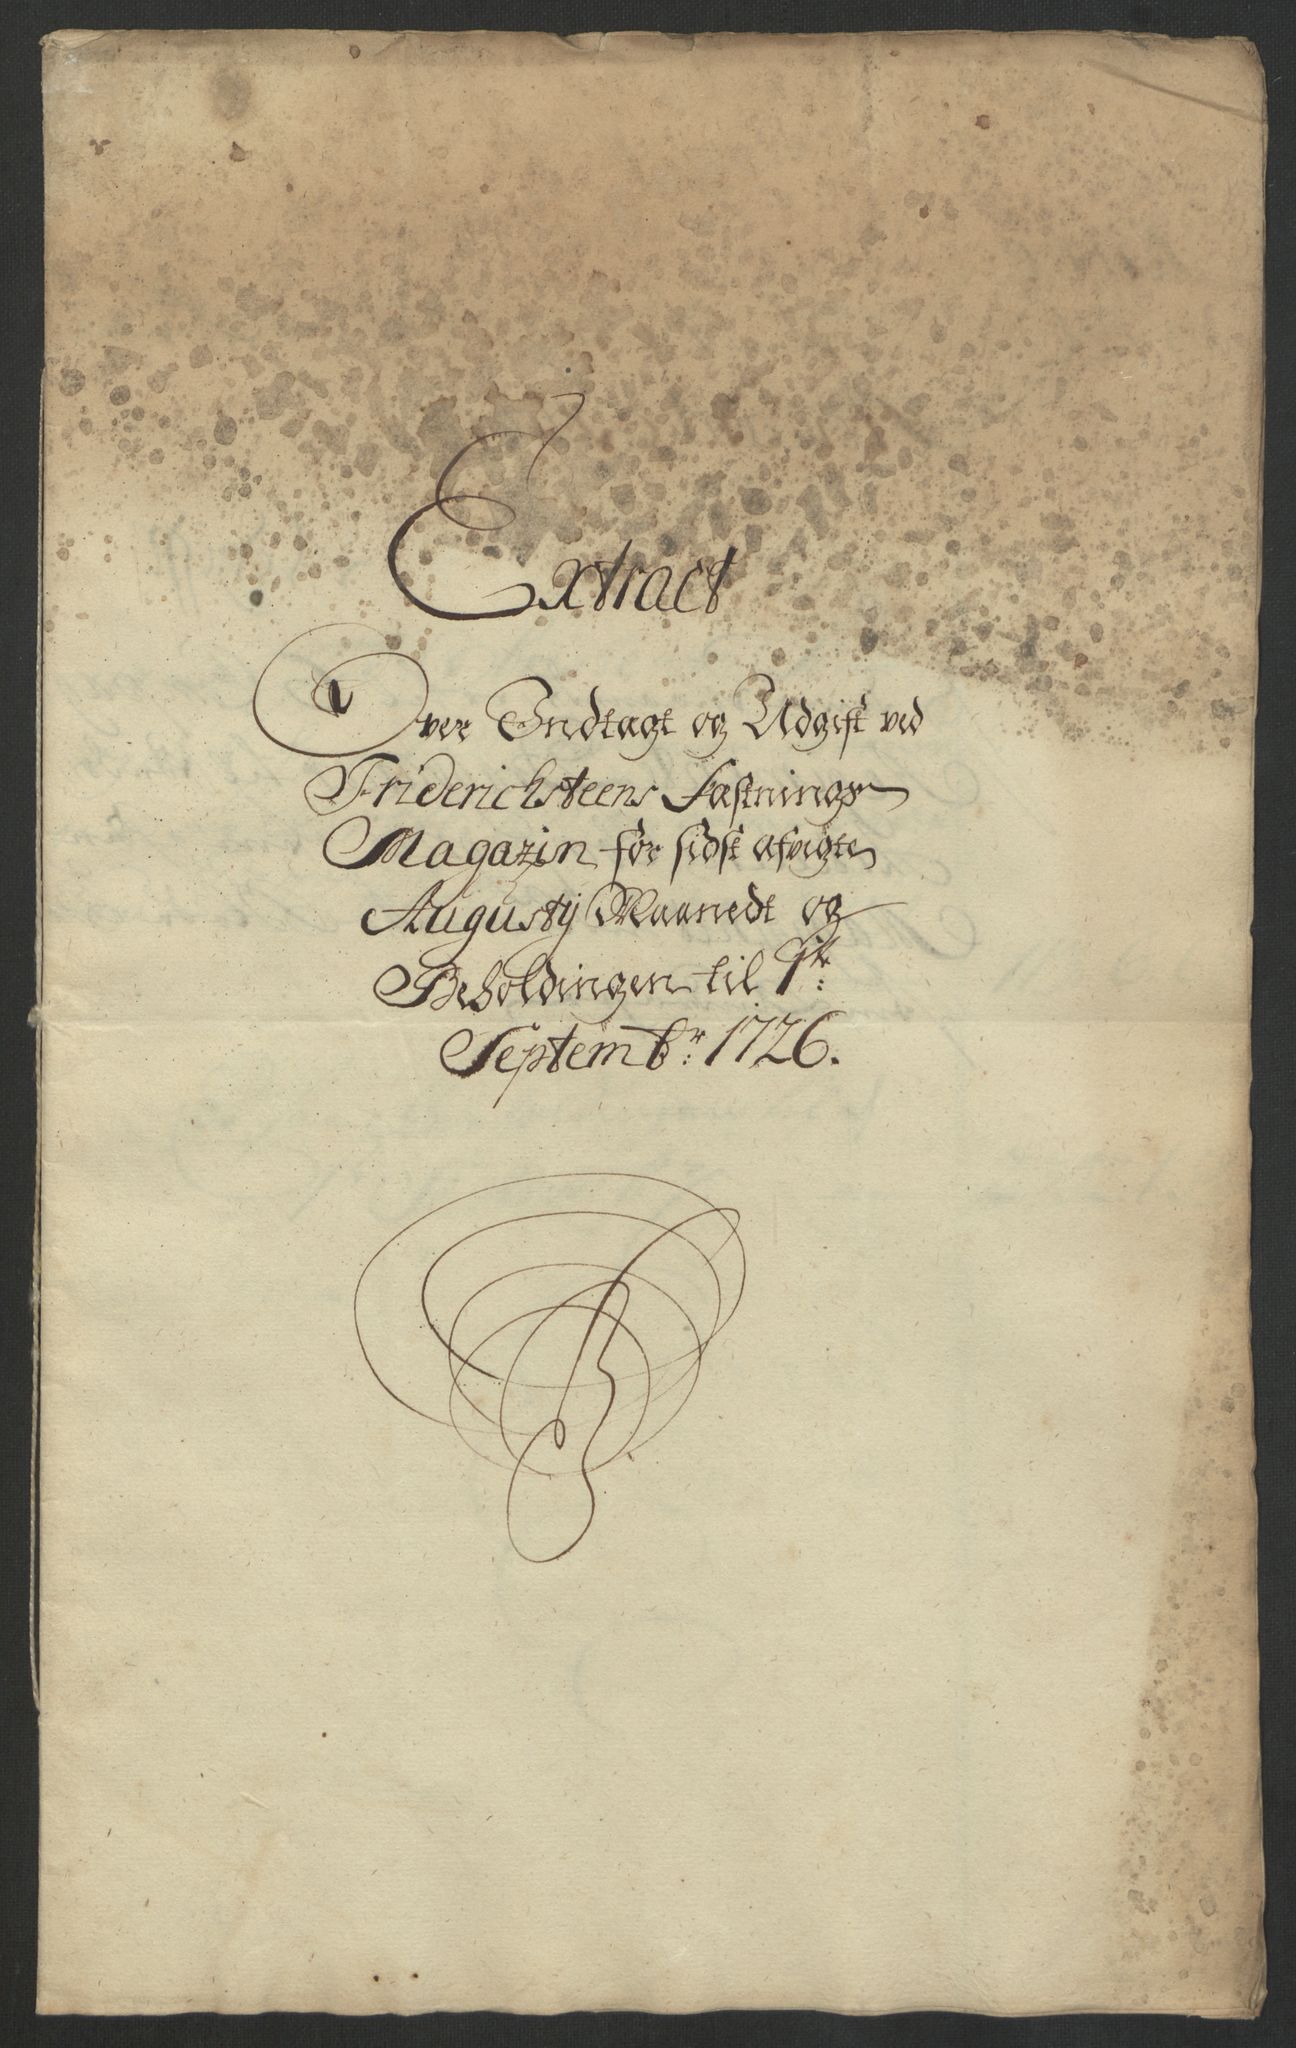 Extract
Over Indtagt og Udgift ved
Friderichsteens Fæstnings
Magazin for sidst afvigte
Augustij Maanedt og
Beholdingen til 1te:
Septembr: 1726.